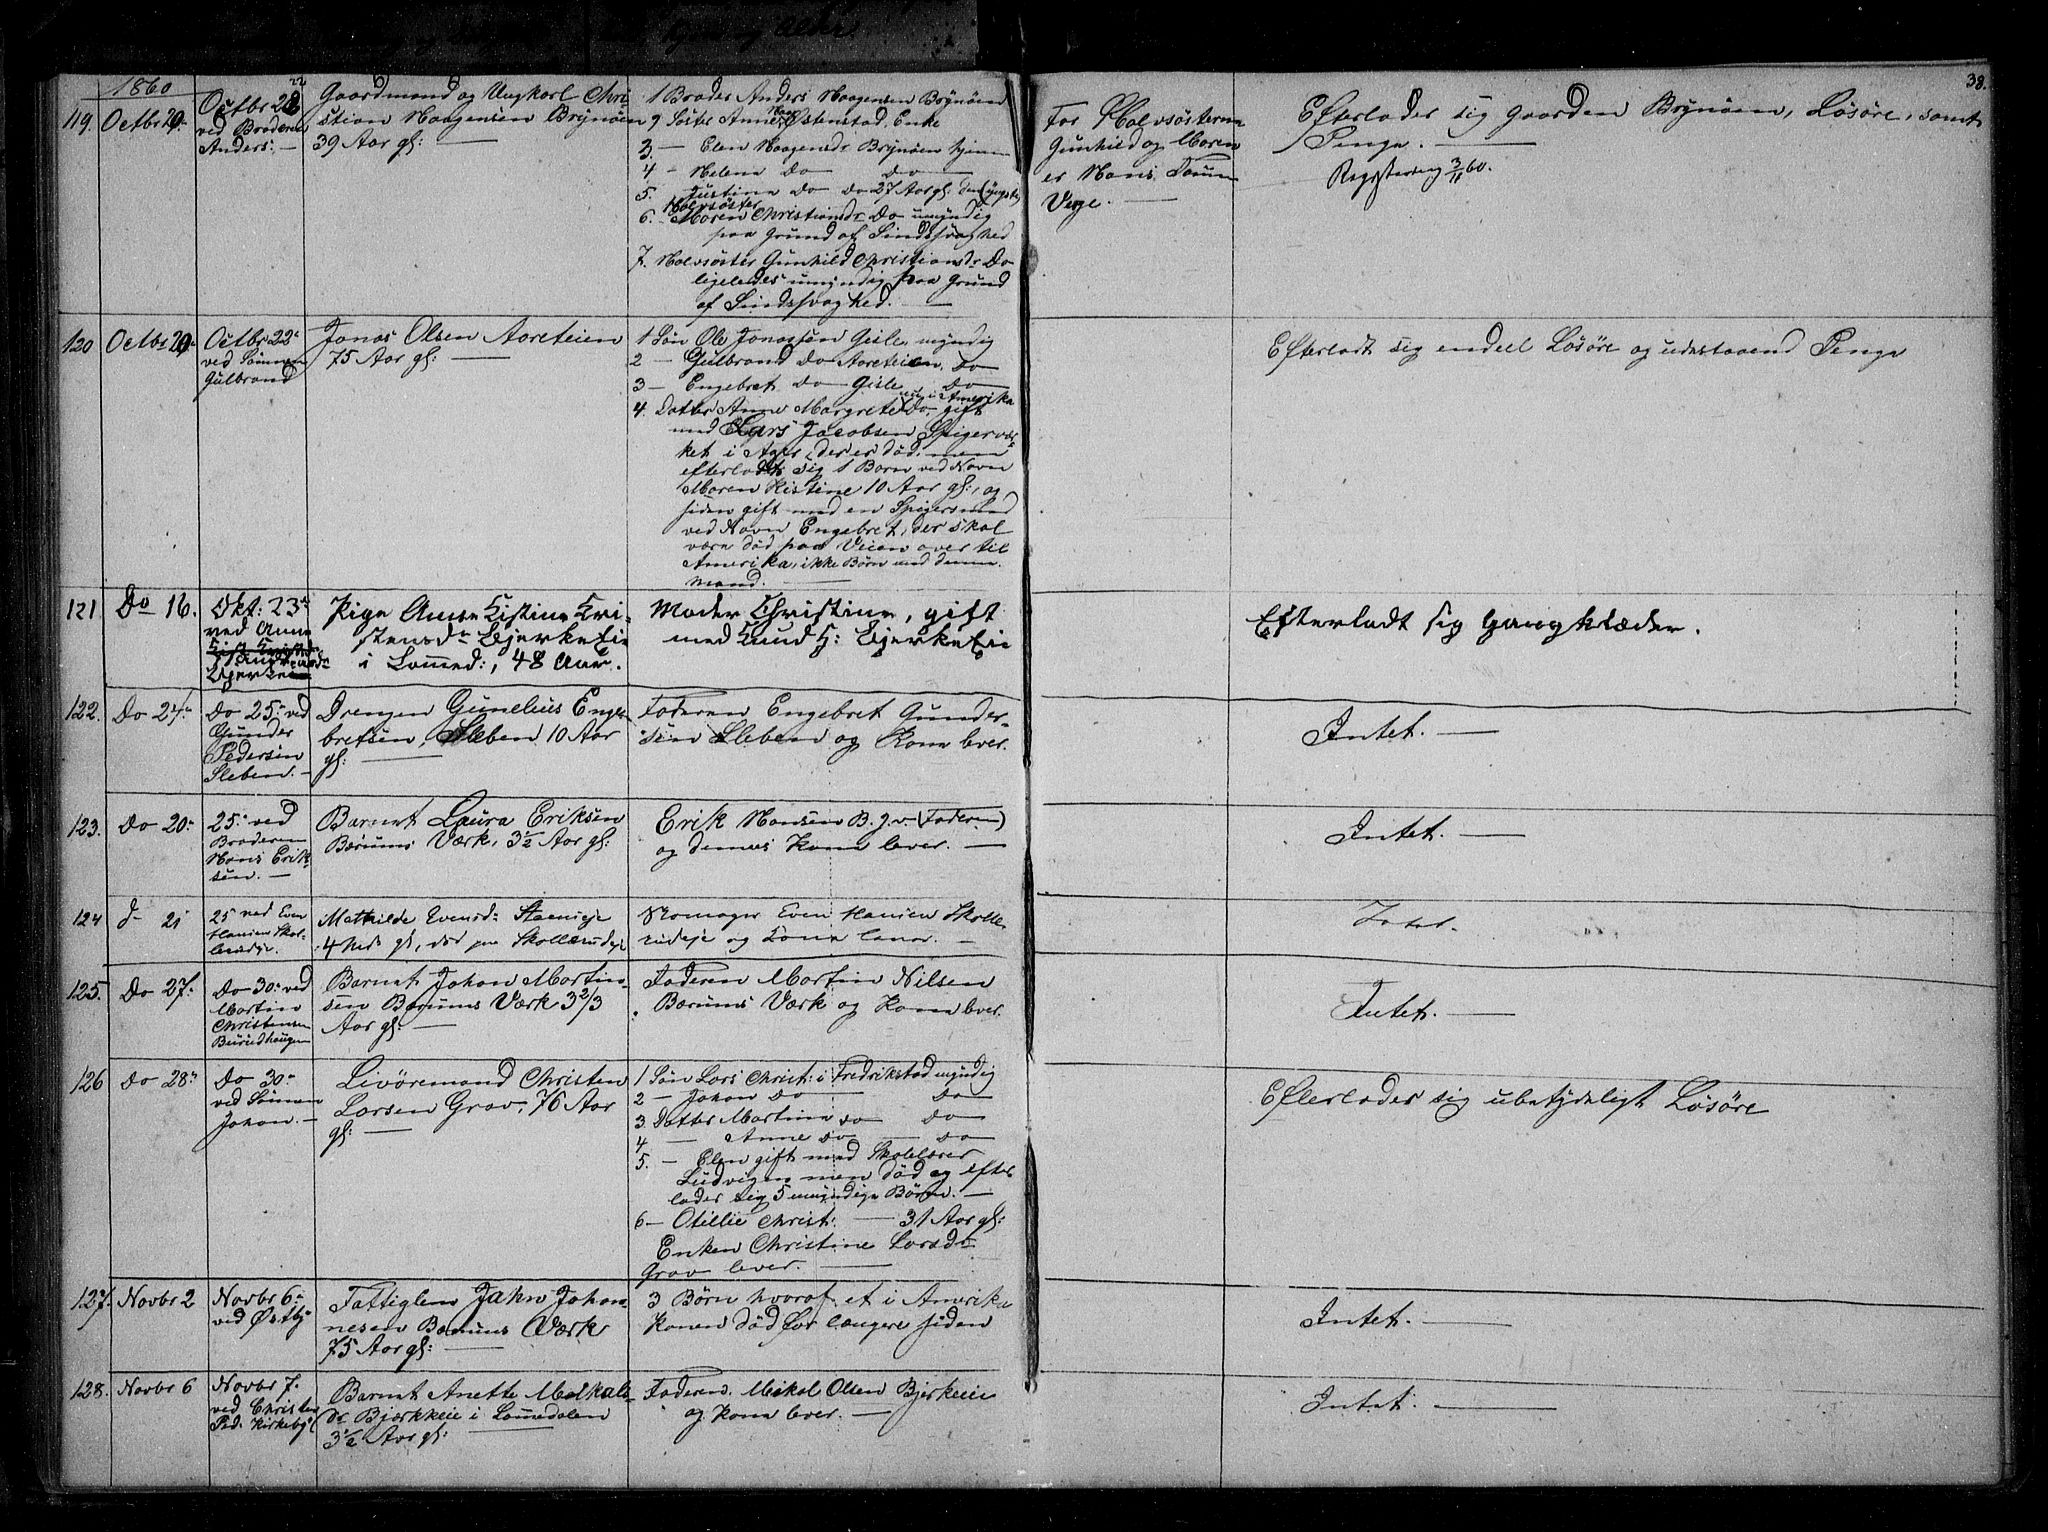 1860
38.
119. Octbr 20.
Octbr 22
ved Broderen
Anders. —
Gaardmand og Ungkarl Chri-
stian Haagensen Brynøen
39 Aar gl: —
1 Broder Anders Haagensen Brynøen
2 Søster Anne Østenstad, Enke
3. — Elen Haagensdr Brynøen hjemme
4 — Helene Do Do
5. Justine Do Do 27 Aar gl. den yngste
Halvsøster
6. — Maren Christiansdr Do umyndig
paa Grund af Sindssvaghed
7. Halvsøster Gunhild Christiansdr Do
ligeledes umyndig paa Grund
af Sindssvaghed. —
For Halvsøsterne
Gunhild og Maren
er Hans
Verge. —
Efterlader sig Gaarden Brynøen, Løsøre, samt
Penge. —
Registrering 3/11 60.
120 Octbr 20.
Octbr 22
ved Sønnen
Gulbrand
Jonas Olsen Aareteien
75 Aar gl: —
1 Søn Ole Jonassen Gisle, myndig
2 — Gulbrand Do Aareteien, Do
3 — Engebret Do Gisle Do
4. Datter Anne Margrete Do, gift
i Amerika
med Lars Jacobsen Spigervær-
ket i Ager, der er død, men
efterladt sig 1 Barn ved Navn
Maren Kistine 10 Aar gl:, og
siden gift med en Spigersmed
ved Navn Engebret, der skal
være død paa Veien over til
Amerika, ikke Børn med denne
Mand. —
Efterladt sig endeel Løsøre og udestaaend Penge
121 Do 16.
Okt: 23
ved Anne
Pige Anne Kistine Kri-
stensdr Bjerkeeie
i Lomed:, 48 Aar.
Moder Christine, gift
med Knud H: Bjerkeeie
Efterladt sig Gangklæder.
122. Do 24.
Do 25 ved
Gunder
Pedersen
Sleben. —
Drengen Gunelius Enge-
bretsen, Sleben 10 Aar
gl: —
Faderen Engebret Gunder-
sen Sleben og Kone lever.
Intet. —
123. Do 20.
25 ved
Broderen
Hans Erik-
sen. —
Barnet Laura Eriksen
Bærums Værk, 3½ Aar gl:
Erik Hansen B. J. v. (Faderen)
og dennes Kone lever. —
Intet. —
124 d— 21
25 ved Even
Hansen Skol-
lerudeje.
Mathilde Evensd: Steenseje
4 gl, død paa Skollerudeje
Even Hansen Skolle-
rudeje og Kone lever. —
Intet.
125. Do 27.
Do 30. ved
Martin
Christensen
Barnet Johan Martin-
sen Bærums Værk 3 2/3
Aar gl: —
Faderen Martin Nilsen
Bærums Værk og Kone lever.
Intet. —
126 Do 28.
Do 30.
ved Sønnen
Johan. —
Livøremand Christen
Larsen Grav, 76 Aar
gl: —
1 Søn Lars Christ: i Fredrikstad myndig
2 — Johan Do — Do
3. Datter Martine Do Do
4 — Anne Do — Do
5. — Elen gift med Skolelærer
Ludvigsen men død og efter-
lader sig 5 umyndige Børn. —
6 — Otillie Christ: — 31 Aar gl:
Enken Christine Larsdr
Grav lever. —
Efterlader sig ubetydeligt Løsøre
127. Novbr 2
Novbr 6.
ved Østby
Fattiglem Jahn Johan-
nesen Bærums Værk
75 Aar gl: —
3 Børn hvoraf et i Amerika
Konen død for længere siden
Intet. —
128. Novbr 6
Novbr 7.
ved Christen
Ped. Kirkeby
Barnet Anette
dr Bjærkeeie i Lomedalen
3½ Aar gl:
Faderen. Mikal Olsen Bjerkeeie
og Kone lever. —
Intet. —